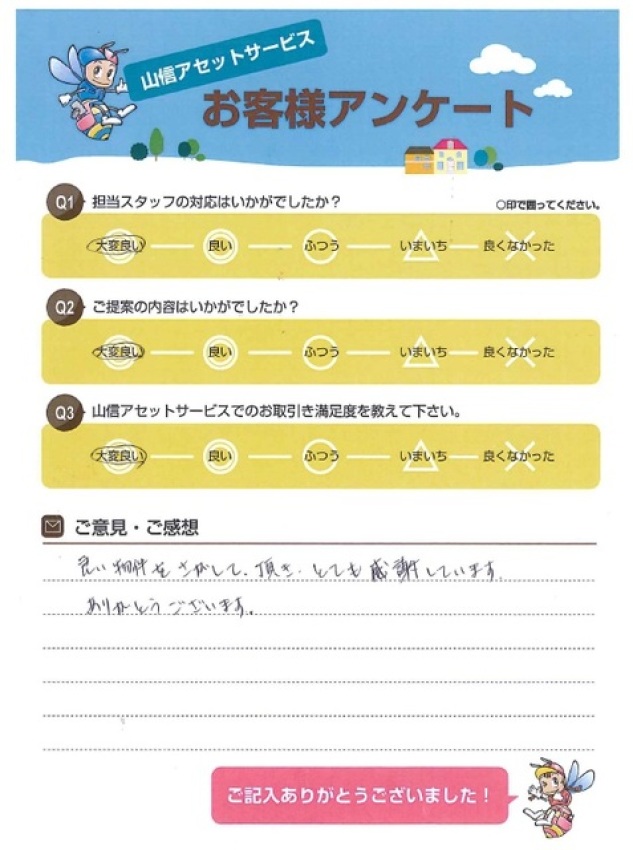 山信アセットサービス
お客様アンケート
Q1 担当スタッフの対応はいかがでしたか？ ○印で囲ってください。
大変良い 良い ふつう いまいち 良くなかった
Q2 ご提案の内容はいかがでしたか？
大変良い 良い ふつう いまいち 良くなかった
Q3 山信アセットサービスでのお取引き満足度を教えて下さい。
大変良い 良い ふつう いまいち 良くなかった
ご意見・ご感想
良い物件をさがして、頂き、とても感謝しています。
ありがとうございます。
ご記入ありがとうございました！